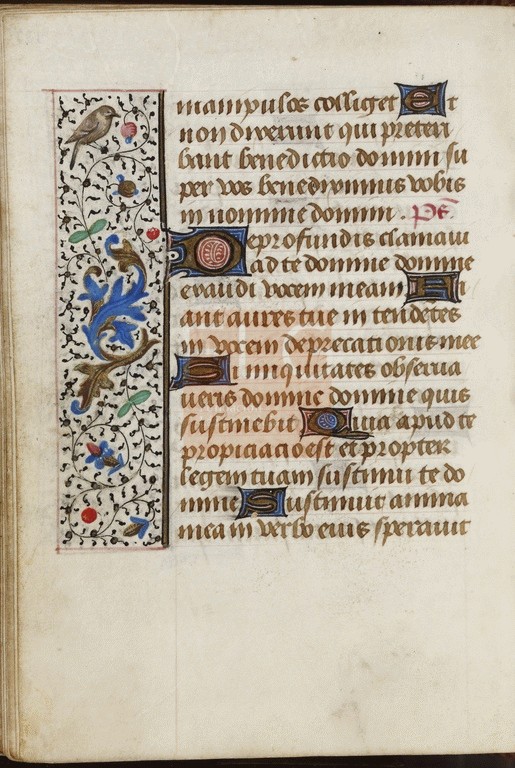 manipulos colliget Et
non dixerunt qui preteri
bant benedictio domini su
per vos benediximus vobis
in nomine domini . ps̃.
De profundis clamaui
ad te domine domine
exaudi vocem meam Fi
ant aures tue in tendētes
in vocem deprecationis mee
Si iniquitates obserua
ueris domine domine quis
sustinebit Quia apud te
propiciacio est et propter
legem tuam sustinui te do
mine Sustinuit anima
mea in verbo eius sperauit